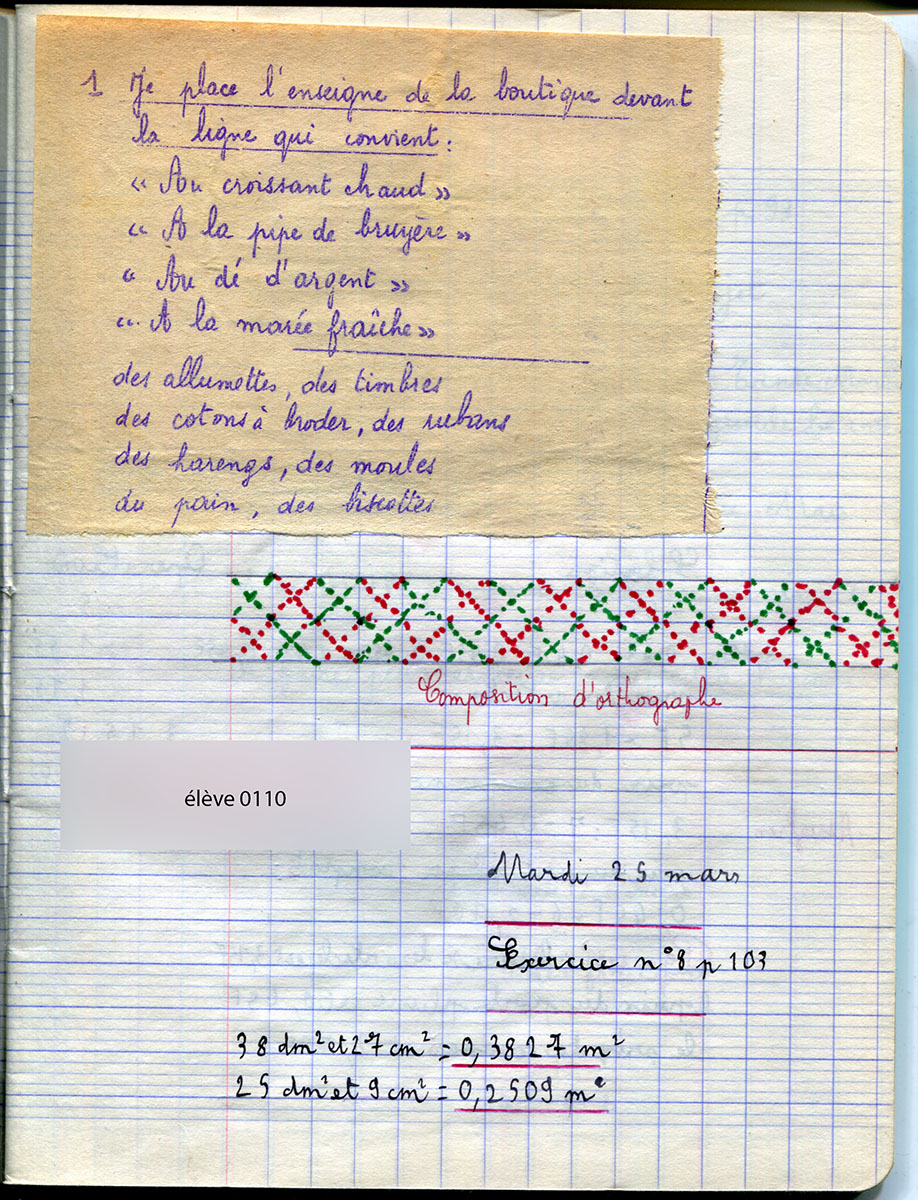 1 Je place l'enseigne de la boutique devant
la ligne qui convient :
« Au croissant chaud »
« A la pipe de bruyère »
« Au dé d'argent »
« A la marée fraîche »
des allumettes, des timbres
des cotons à broder, des rubans
des harengs, des moules
du pain, des biscottes
Composition d'orthographe
élève 0110
Mardi 25 mars
Exercice n°8 p 103
38 dm² et 27 cm² = 0,3827 m²
25 dm² et 9 cm² = 0,2509 m²